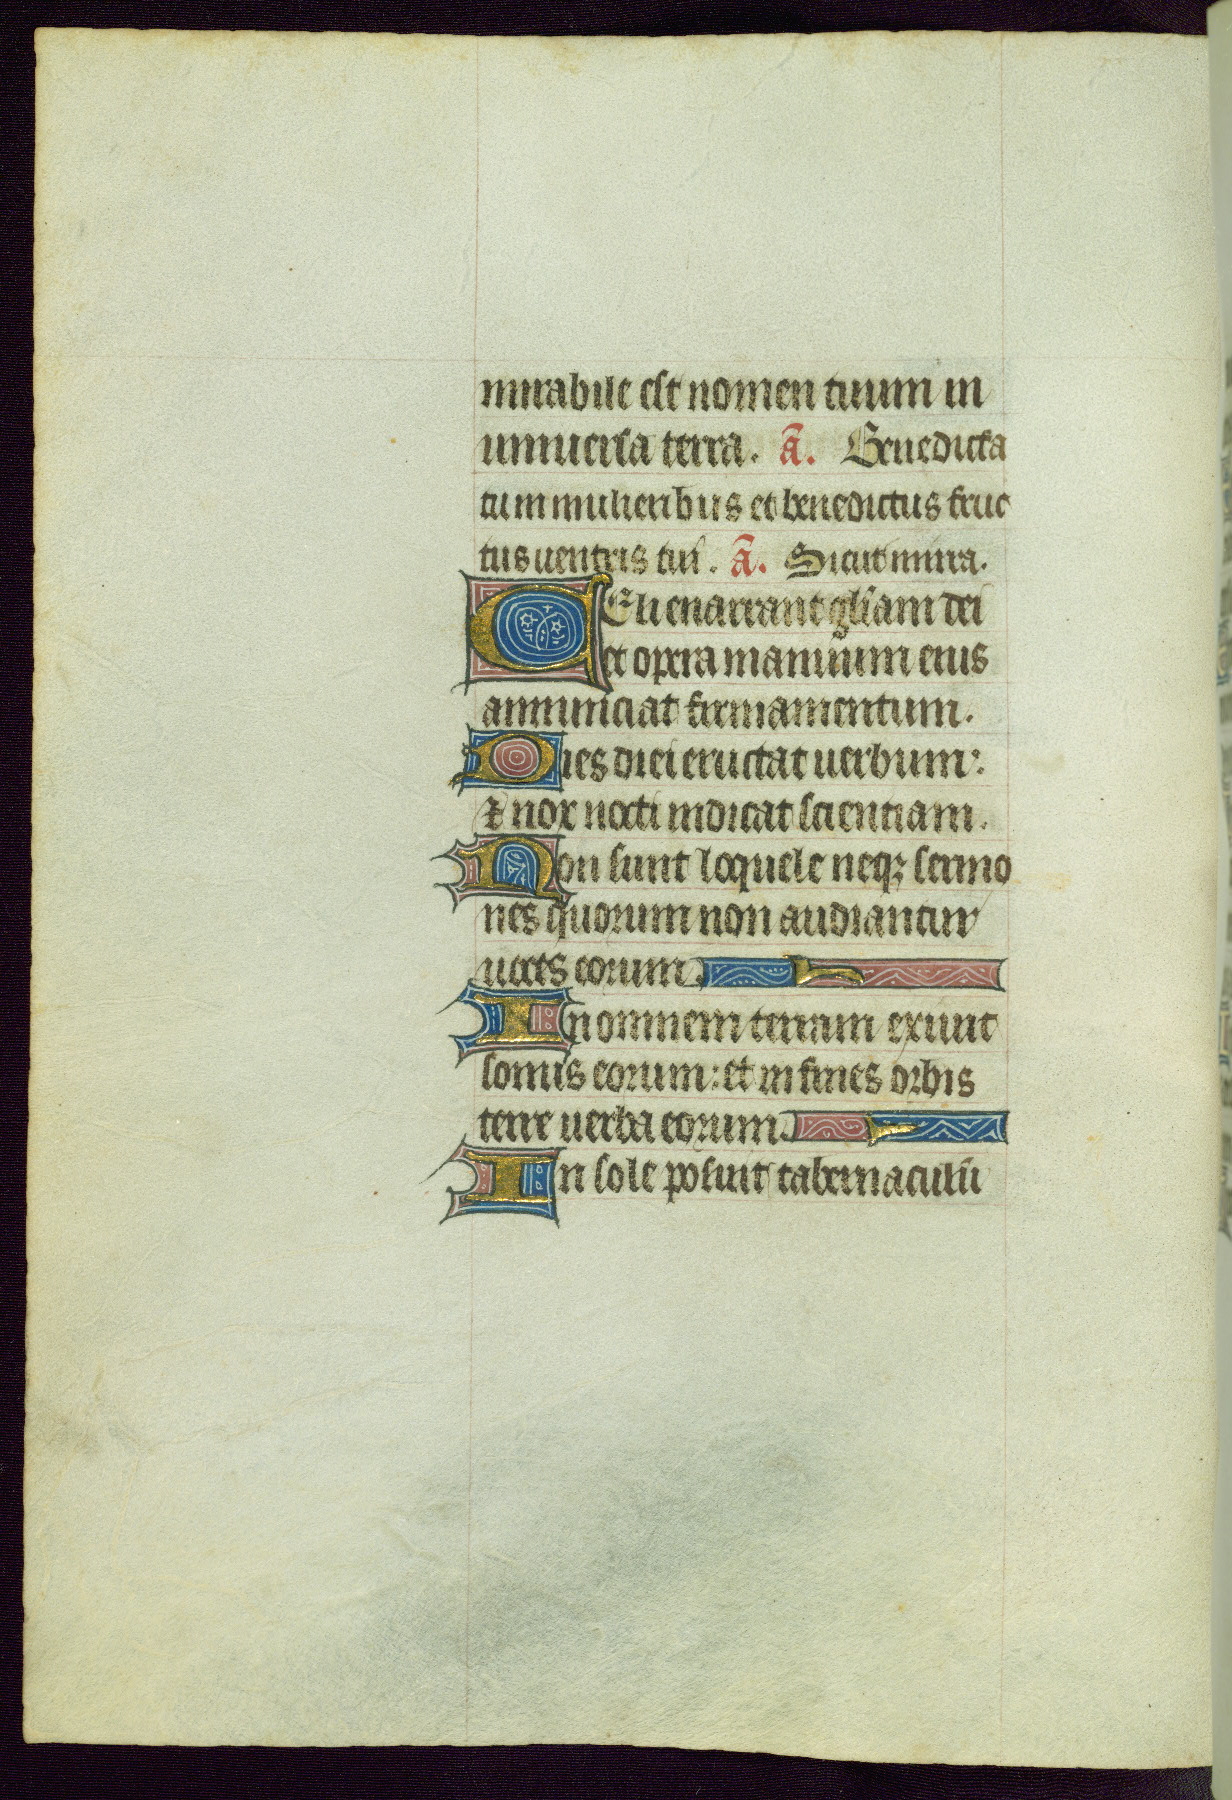 mirabile est nomen tuum in
uniuersa terra. Ā. Benedicta
tu in mulieribus et benedictus fruc
tus uentris tui. Ā. Sicut mirra.
CEli enarrant gl̄iam dei
et opera manuum eius
annunciat firmamentum.
Dies diei eructat uerbum:
⁊ nox nocti indicat scientiam.
Non sunt loquele neqꝫ sermo
nes quorum non audiantur
uoces eorum.
In omnem terram exiuit
sonus eorum: et in fines orbis
terre uerba eorum.
In sole posuit tabernaculū